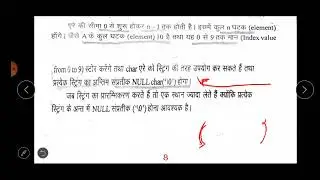 एरे की सीमा 0 से शुरू होकर n – 1 तक होती है। इसमें कुल n घटक (element)
होंगे। जैसे A के कुल घटक (element) 10 है तथा यह 0 से 9 तक मान (Index value
, from 0 to 9) स्टोर करेंगे तथा char एरे को स्ट्रिंग की तरह उपयोग कर सकते हैं तथा
प्रत्येक स्ट्रिंग का अन्तिम संप्रतीक NULL char('\0') होगा।
जब स्ट्रिंग का प्रारम्भिकरण करते हैं तो एक स्थान ज्यादा लेते हैं क्योंकि प्रत्येक
स्ट्रिंग के अन्त में NULL संप्रतीक ('\0') होना आवश्यक है।
8